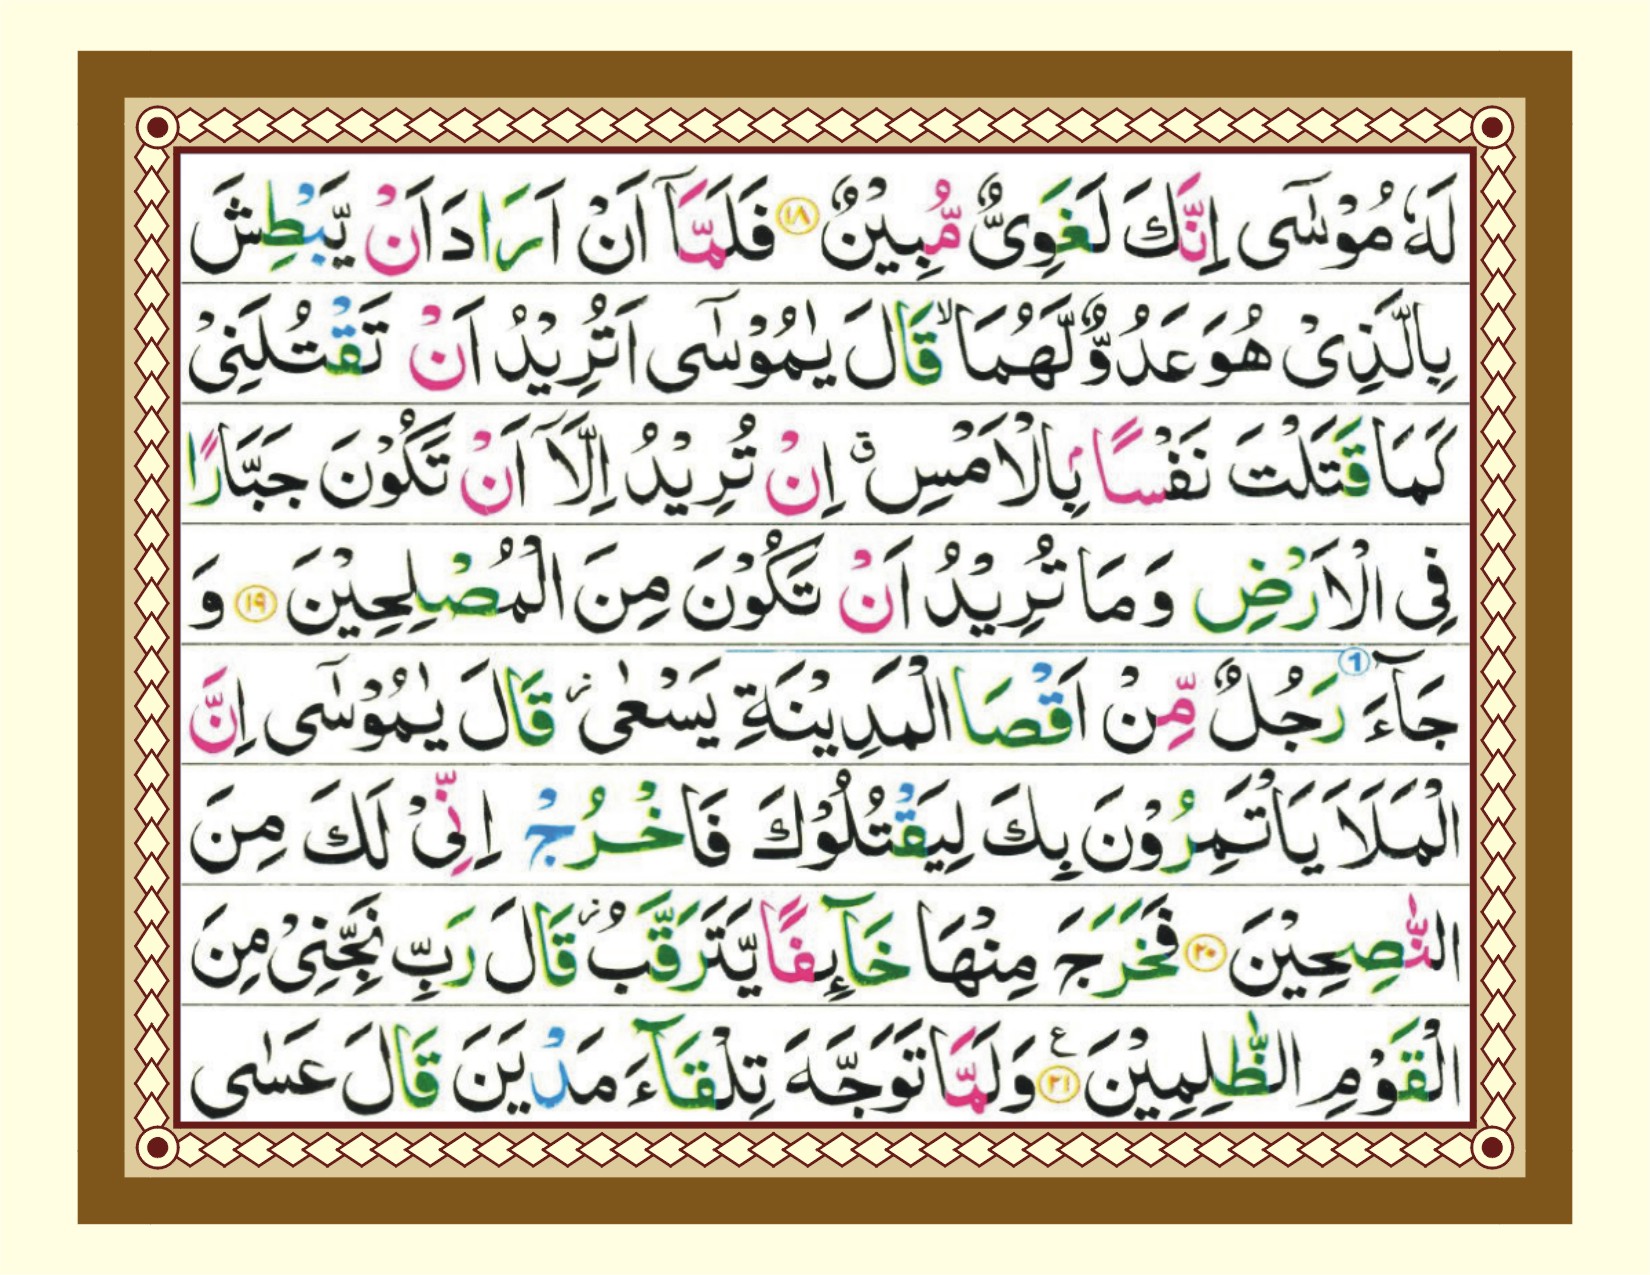 لَهٗ مُوْسٰۤى اِنَّكَ لَغَوِىٌّ مُّبِيْنٌ ﴿۱۸﴾ فَلَمَّاۤ اَنْ اَرَادَ اَنْ يَّبْطِشَ
بِالَّذِىْ هُوَ عَدُوٌّ لَّهُمَا ۙ قَالَ يٰمُوْسٰۤى اَتُرِيْدُ اَنْ تَقْتُلَنِىْ
كَمَا قَتَلْتَ نَفْسًۢا بِالْاَمْسِ ۖ ق اِنْ تُرِيْدُ اِلَّاۤ اَنْ تَكُوْنَ جَبَّارًا
فِى الْاَرْضِ وَمَا تُرِيْدُ اَنْ تَكُوْنَ مِنَ الْمُصْلِحِيْنَ ﴿۱۹﴾ وَ
جَآءَ ① رَجُلٌ مِّنْ اَقْصَا الْمَدِيْنَةِ يَسْعٰى ؗ قَالَ يٰمُوْسٰۤى اِنَّ
الْمَلَاَ يَاْتَمِرُوْنَ بِكَ لِيَقْتُلُوْكَ فَاخْرُجْ اِنِّىْ لَكَ مِنَ
النّٰصِحِيْنَ ﴿۲۰﴾ فَخَرَجَ مِنْهَا خَآىِٕفًا يَّتَرَقَّبُ ؗ قَالَ رَبِّ نَجِّنِىْ مِنَ
الْقَوْمِ الظّٰلِمِيْنَ ﴿۲۱﴾ ع وَلَمَّا تَوَجَّهَ تِلْقَآءَ مَدْيَنَ قَالَ عَسٰى